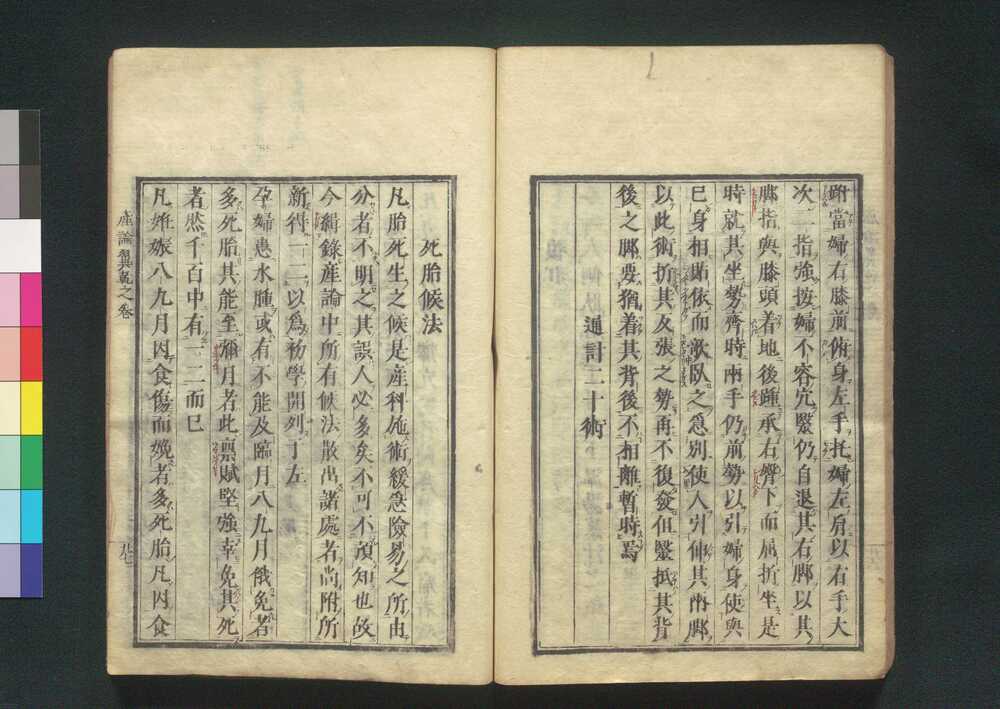 跗當婦右膝前俯身左手托婦左肩以右手大
次二指強按婦不容穴毉仍自退其右脚以其
脚指與膝頭着地後踵承右臀下而屈折坐是
時就其坐勢齊時兩手仍前勢以引婦身使與
已身相貼依而欹臥之爲別使人引伸其兩脚
以此術折其反張之勢再不復發但毉抵其背
後之脚要猶着其背後不相離暫時焉
通計二十術
死胎候法
凡胎死生之候是産科施術緩急險易之所由
分者不明之其誤人必多矣不可不須知也故
今緝錄産論中所有候法散出諸處者尚附所
新得一二以爲初學開列于左
孕婦患水腫或有不能及臨月八九月俄免者
多死胎其能至彌月者此稟賦堅強幸免其死
者然千百中有一二而已
凡姙娠八九月因食傷而娩者多死胎凡因食
産論翼乾之卷